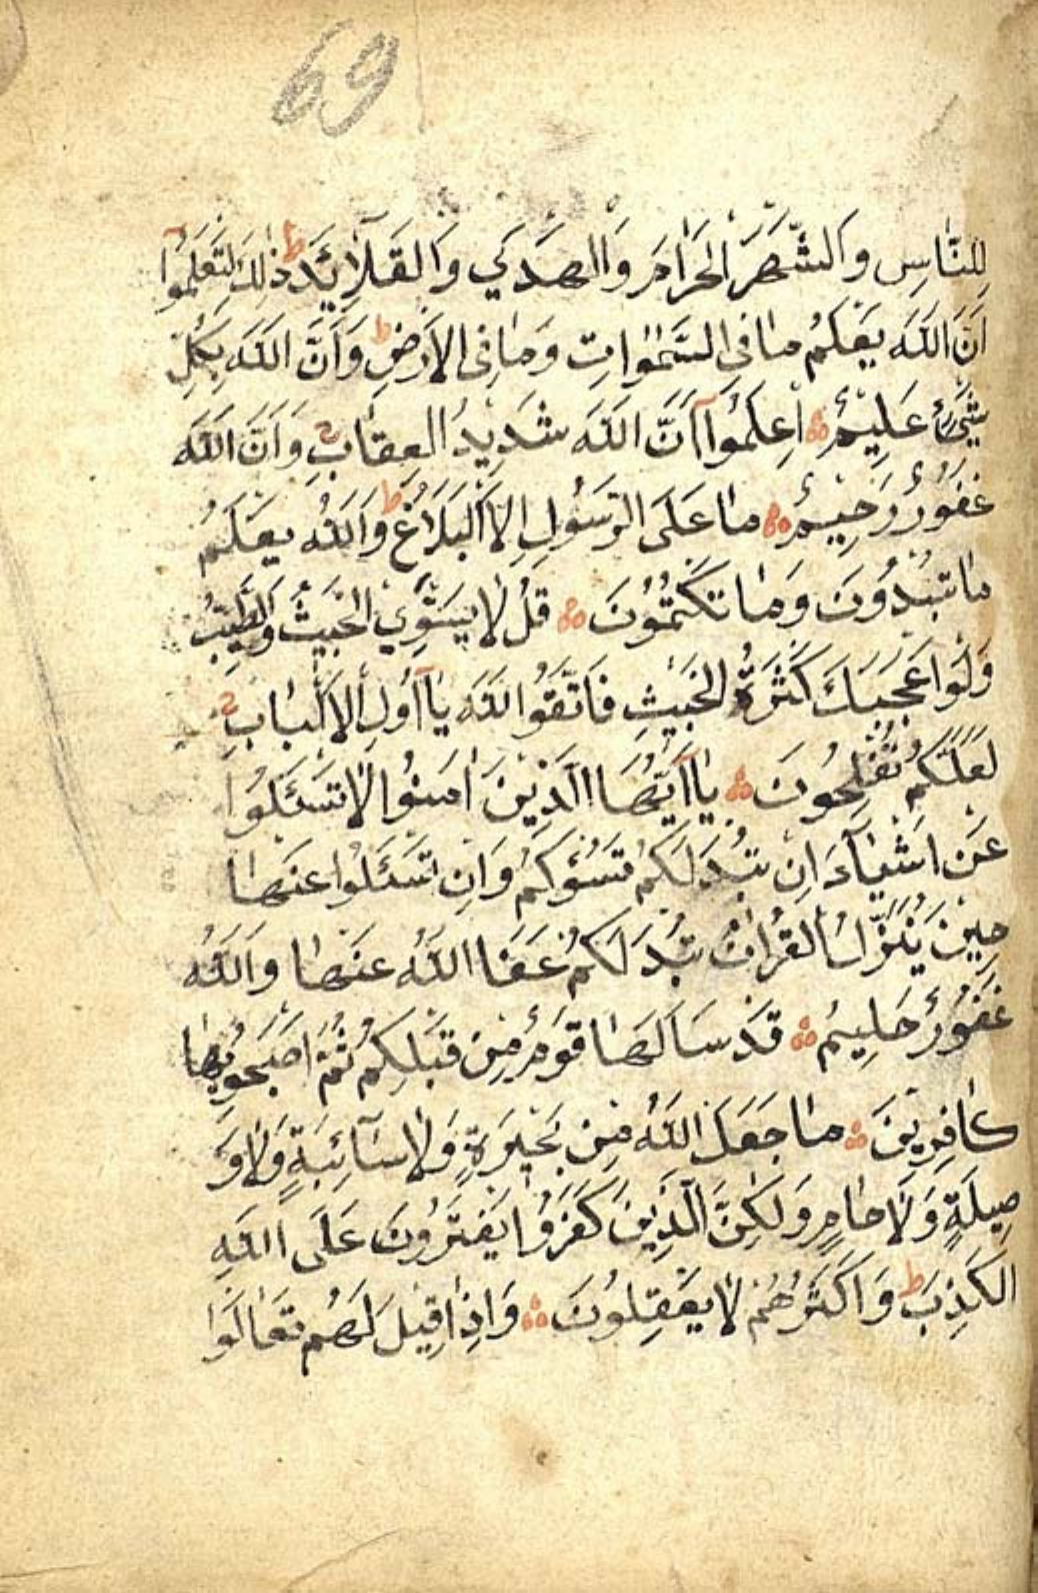 69
لِلنَّاسِ وَالشَّهْرَ الْحَرَامَ وَالْهَدْيَ وَالْقَلَآئِدَ ط ذٰلِكَ لِتَعْلَمُوا
اَنَّ اللّٰهَ يَعْلَمُ مَا فِى السَّمٰوَاتِ وَمَا فِى الْاَرْضِ ط وَاَنَّ اللّٰهَ بِكُلِّ
شَيْءٍ عَلِيمٌ ۞ اِعْلَمُوآ اَنَّ اللّٰهَ شَدِيدُ الْعِقَابِ وَاَنَّ اللّٰهَ
غَفُورٌ رَحِيمٌ ۞ مَا عَلَى الرَّسُولِ اِلَّا الْبَلَاغُ ط وَاللّٰهُ يَعْلَمُ
مَا تُبْدُونَ وَمَا تَكْتُمُونَ ۞ قُلْ لَا يَسْتَوِي الْخَبِيثُ وَالطَّيِّبُ
وَلَوْ اَعْجَبَكَ كَثْرَةُ الْخَبِيثِ فَاتَّقُوا اللّٰهَ يَآ اُولِ الْاَلْبَابِ
لَعَلَّكُمْ تُفْلِحُونَ ۞ يَآ اَيُّهَا الَّذِينَ اٰمَنُوا لَا تَسْئَلُوا
عَنْ اَشْيَآءَ اِنْ تُبْدَ لَكُمْ تَسُؤْكُمْ وَاِنْ تَسْئَلُوا عَنْهَا
حِينَ يُنَزَّلُ الْقُرْاٰنُ تُبْدَ لَكُمْ عَفَا اللّٰهُ عَنْهَا وَاللّٰهُ
غَفُورٌ حَلِيمٌ ۞ قَدْ سَاَلَهَا قَوْمٌ مِنْ قَبْلِكُمْ ثُمَّ اَصْبَحُوا بِهَا
كَافِرِينَ ۞ مَا جَعَلَ اللّٰهُ مِنْ بَحِيرَةٍ وَلَا سَآئِبَةٍ وَلَا وَ
صِيلَةٍ وَلَا حَامٍ وَلٰكِنَّ الَّذِينَ كَفَرُوا يَفْتَرُونَ عَلَى اللّٰهِ
الْكَذِبَ ط وَاَكْثَرُهُمْ لَا يَعْقِلُونَ ۞ وَاِذَا قِيلَ لَهُمْ تَعَالَوْا